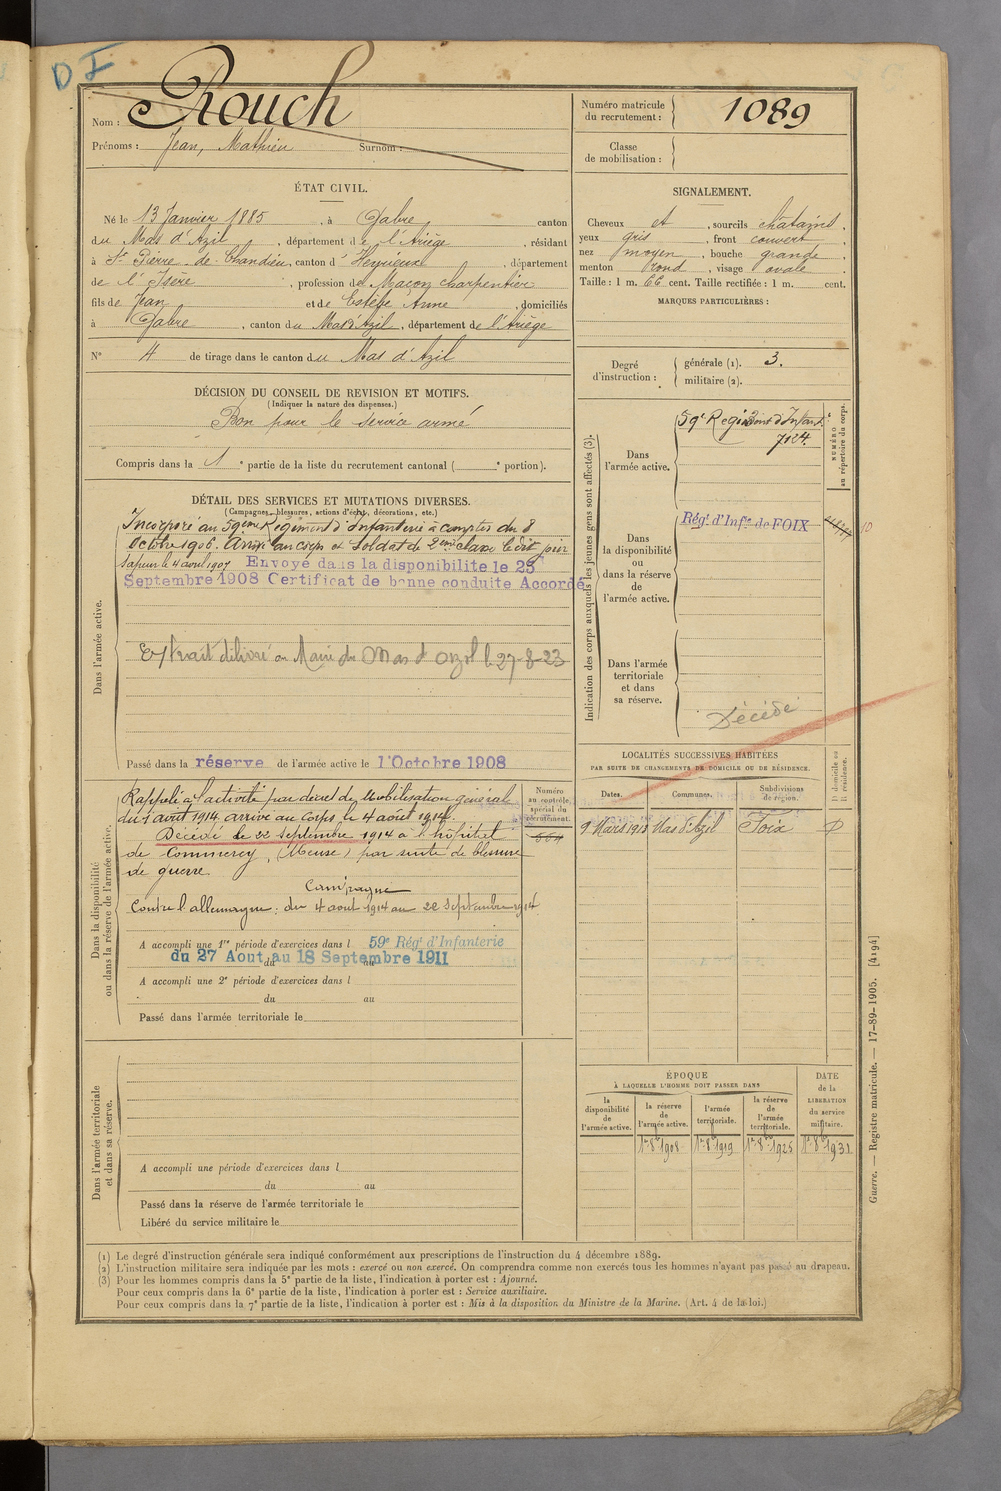 D I
Nom : Rouch
Prénoms : Jean, Mathieu Surnom :
ÉTAT CIVIL.
Né le 13 Janvier 1885, à Gabre canton
du Mas d'Azil, département de l'Ariège, résidant
à St Pierre de Chandieu, canton d'Heyrieux, département
de l'Isère, profession de Maçon charpentier
fils de Jean et de Estèbe Anne, domiciliés
à Gabre, canton du Mas d'Azil, département de l'Ariège
N° 4 de tirage dans le canton du Mas d'Azil
DÉCISION DU CONSEIL DE REVISION ET MOTIFS.
(Indiquer la nature des dispenses.)
Bon pour le service armé
Compris dans la 1e partie de la liste du recrutement cantonal ( e portion).
DÉTAIL DES SERVICES ET MUTATIONS DIVERSES.
(Campagnes, blessures, actions d'éclat, décorations, etc.)
Dans l'armée active.
Incorporé au 59ème Régiment d'Infanterie à compter du 8
Octobre 1906. Arrivé au corps et Soldat de 2eme classe le dit jour
Sapeur le 4 aout 1907 Envoyé dans la disponibilite le 25
Septembre 1908 Certificat de bonne conduite Accordé
Extrait délivré au Maire du Mas d'Azil le 27-8-23
Passé dans la réserve de l'armée active le 1'Octobre 1908
Dans la disponibilité
ou dans la réserve de l'armée active.
Rappelé à l'activité par décret de Mobilisation générale
du 1 août 1914 arrivé au Corps le 4 août 1914.
Décédé le 22 septembre 1914 à l'hôpital
de Commercy, (Meuse) par suite de blessure
de guerre
Campagne
Contre l'allemagne : du 4 aout 1914 au 22 Septembre 1914
A accompli une 1re période d'exercices dans l 59e Régt d'Infanterie
du 27 Aout au 18 Septembre 1911
A accompli une 2e période d'exercices dans l
du au
Passé dans l'armée territoriale le
Numéro
au contrôle
spécial du
recrutement.
564
Dans l'armée territoriale
et dans sa réserve.
A accompli une période d'exercices dans l
du au
Passé dans la réserve de l'armée territoriale le
Libéré du service militaire le
Numéro matricule
du recrutement : 1089
Classe
de mobilisation :
SIGNALEMENT.
Cheveux et, sourcils châtains,
yeux gris, front couvert,
nez moyen, bouche grande,
menton rond, visage ovale.
Taille : 1 m. 66 cent. Taille rectifiée : 1 m. cent.
MARQUES PARTICULIÈRES :
Degré
d'instruction :
générale (1). 3.
militaire (2).
Indication des corps auxquels les jeunes gens sont affectés (3).
NUMÉRO
au répertoire du corps.
Dans
l'armée active.
59e Régiment d'Infant.
7124.
Dans
la disponibilité
ou
dans la réserve
de
l'armée active.
Régt d'Infie de FOIX
Dans l'armée
territoriale
et dans
sa réserve.
Décédé
LOCALITÉS SUCCESSIVES HABITÉES
PAR SUITE DE CHANGEMENTS DE DOMICILE OU DE RÉSIDENCE.
Dates. Communes. Subdivisions
de région.
D domicile ou
R résidence.
9 Mars 1913 Mas d'Azil Foix D
ÉPOQUE
À LAQUELLE L'HOMME DOIT PASSER DANS
la
disponibilité
de
l'armée active.
la réserve
de
l'armée active.
l'armée
territoriale.
la réserve
de
l'armée
territoriale.
DATE
de la
LIBÉRATION
du service
militaire.
1er 8bre 1908 1er 8bre 1919 1er 8bre 1925 1er 8bre 1931
Guerre. — Registre matricule. — 17-89-1905. [4194]
(1) Le degré d'instruction générale sera indiqué conformément aux prescriptions de l'instruction du 4 décembre 1889.
(2) L'instruction militaire sera indiquée par les mots : exercé ou non exercé. On comprendra comme non exercés tous les hommes n'ayant pas passé au drapeau.
(3) Pour les hommes compris dans la 5e partie de la liste, l'indication à porter est : Ajourné.
Pour ceux compris dans la 6e partie de la liste, l'indication à porter est : Service auxiliaire.
Pour ceux compris dans la 7e partie de la liste, l'indication à porter est : Mis à la disposition du Ministre de la Marine. (Art. 4 de la loi.)